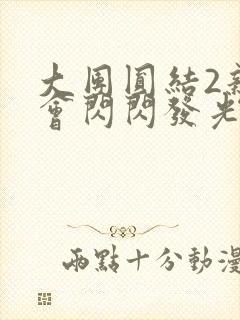 大團圓結2新
會閃閃發光
兩點十分動漫